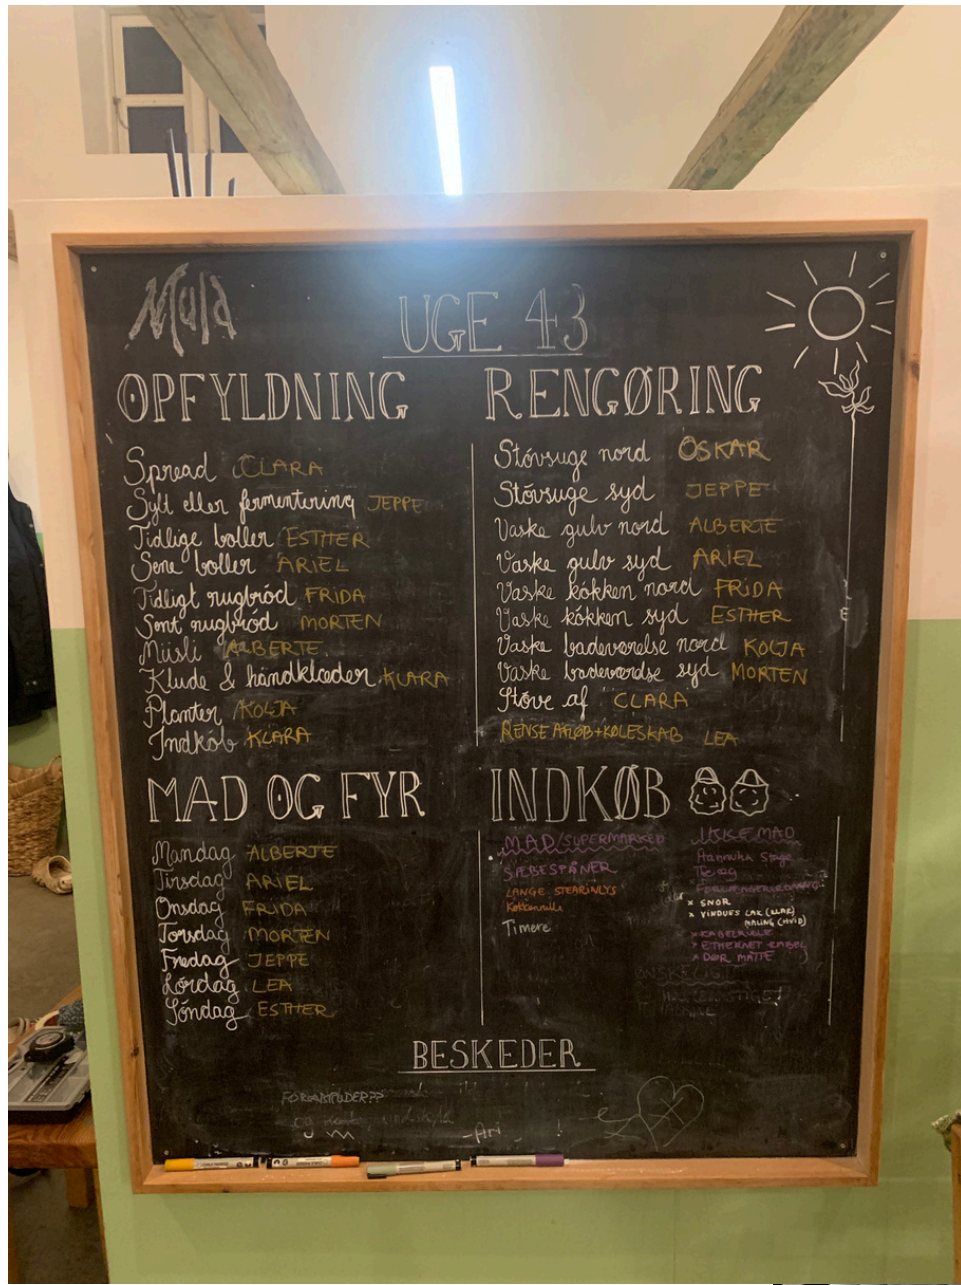 Muld
UGE 43
OPFYLDNING
Spread CLARA
Sylt eller fermentering JEPPE
Tidlige boller ESTHER
Sene boller ARIEL
Tidligt rugbröd FRIDA
Sent rugbröd MORTEN
Müsli ALBERTE
Klude & håndklæder KLARA
Planter KOLJA
Indköb KLARA
RENGØRING
Stövsuge nord OSKAR
Stövsuge syd JEPPE
Vaske gulv nord ALBERTE
Vaske gulv syd ARIEL
Vaske kökken nord FRIDA
Vaske kökken syd ESTHER
Vaske badeværelse nord KOLJA
Vaske badeværelse syd MORTEN
Stöve af CLARA
RENSE AFLØB+KØLESKAB LEA
MAD OG FYR
Mandag ALBERTE
Tirsdag ARIEL
Onsdag FRIDA
Torsdag MORTEN
Fredag JEPPE
Lördag LEA
Söndag ESTHER
INDKØB
MAD/SUPERMARKED
SÆBESPÅNER
LANGE STEARINLYS
Køkkenrulle
Timere
IKKE MAD
× SNOR
× VINDUES LAK (KLAR)
MALING (HVID)
× KABELRULLE
× ETHERNET KABEL
× DØR MÅTTE
BESKEDER